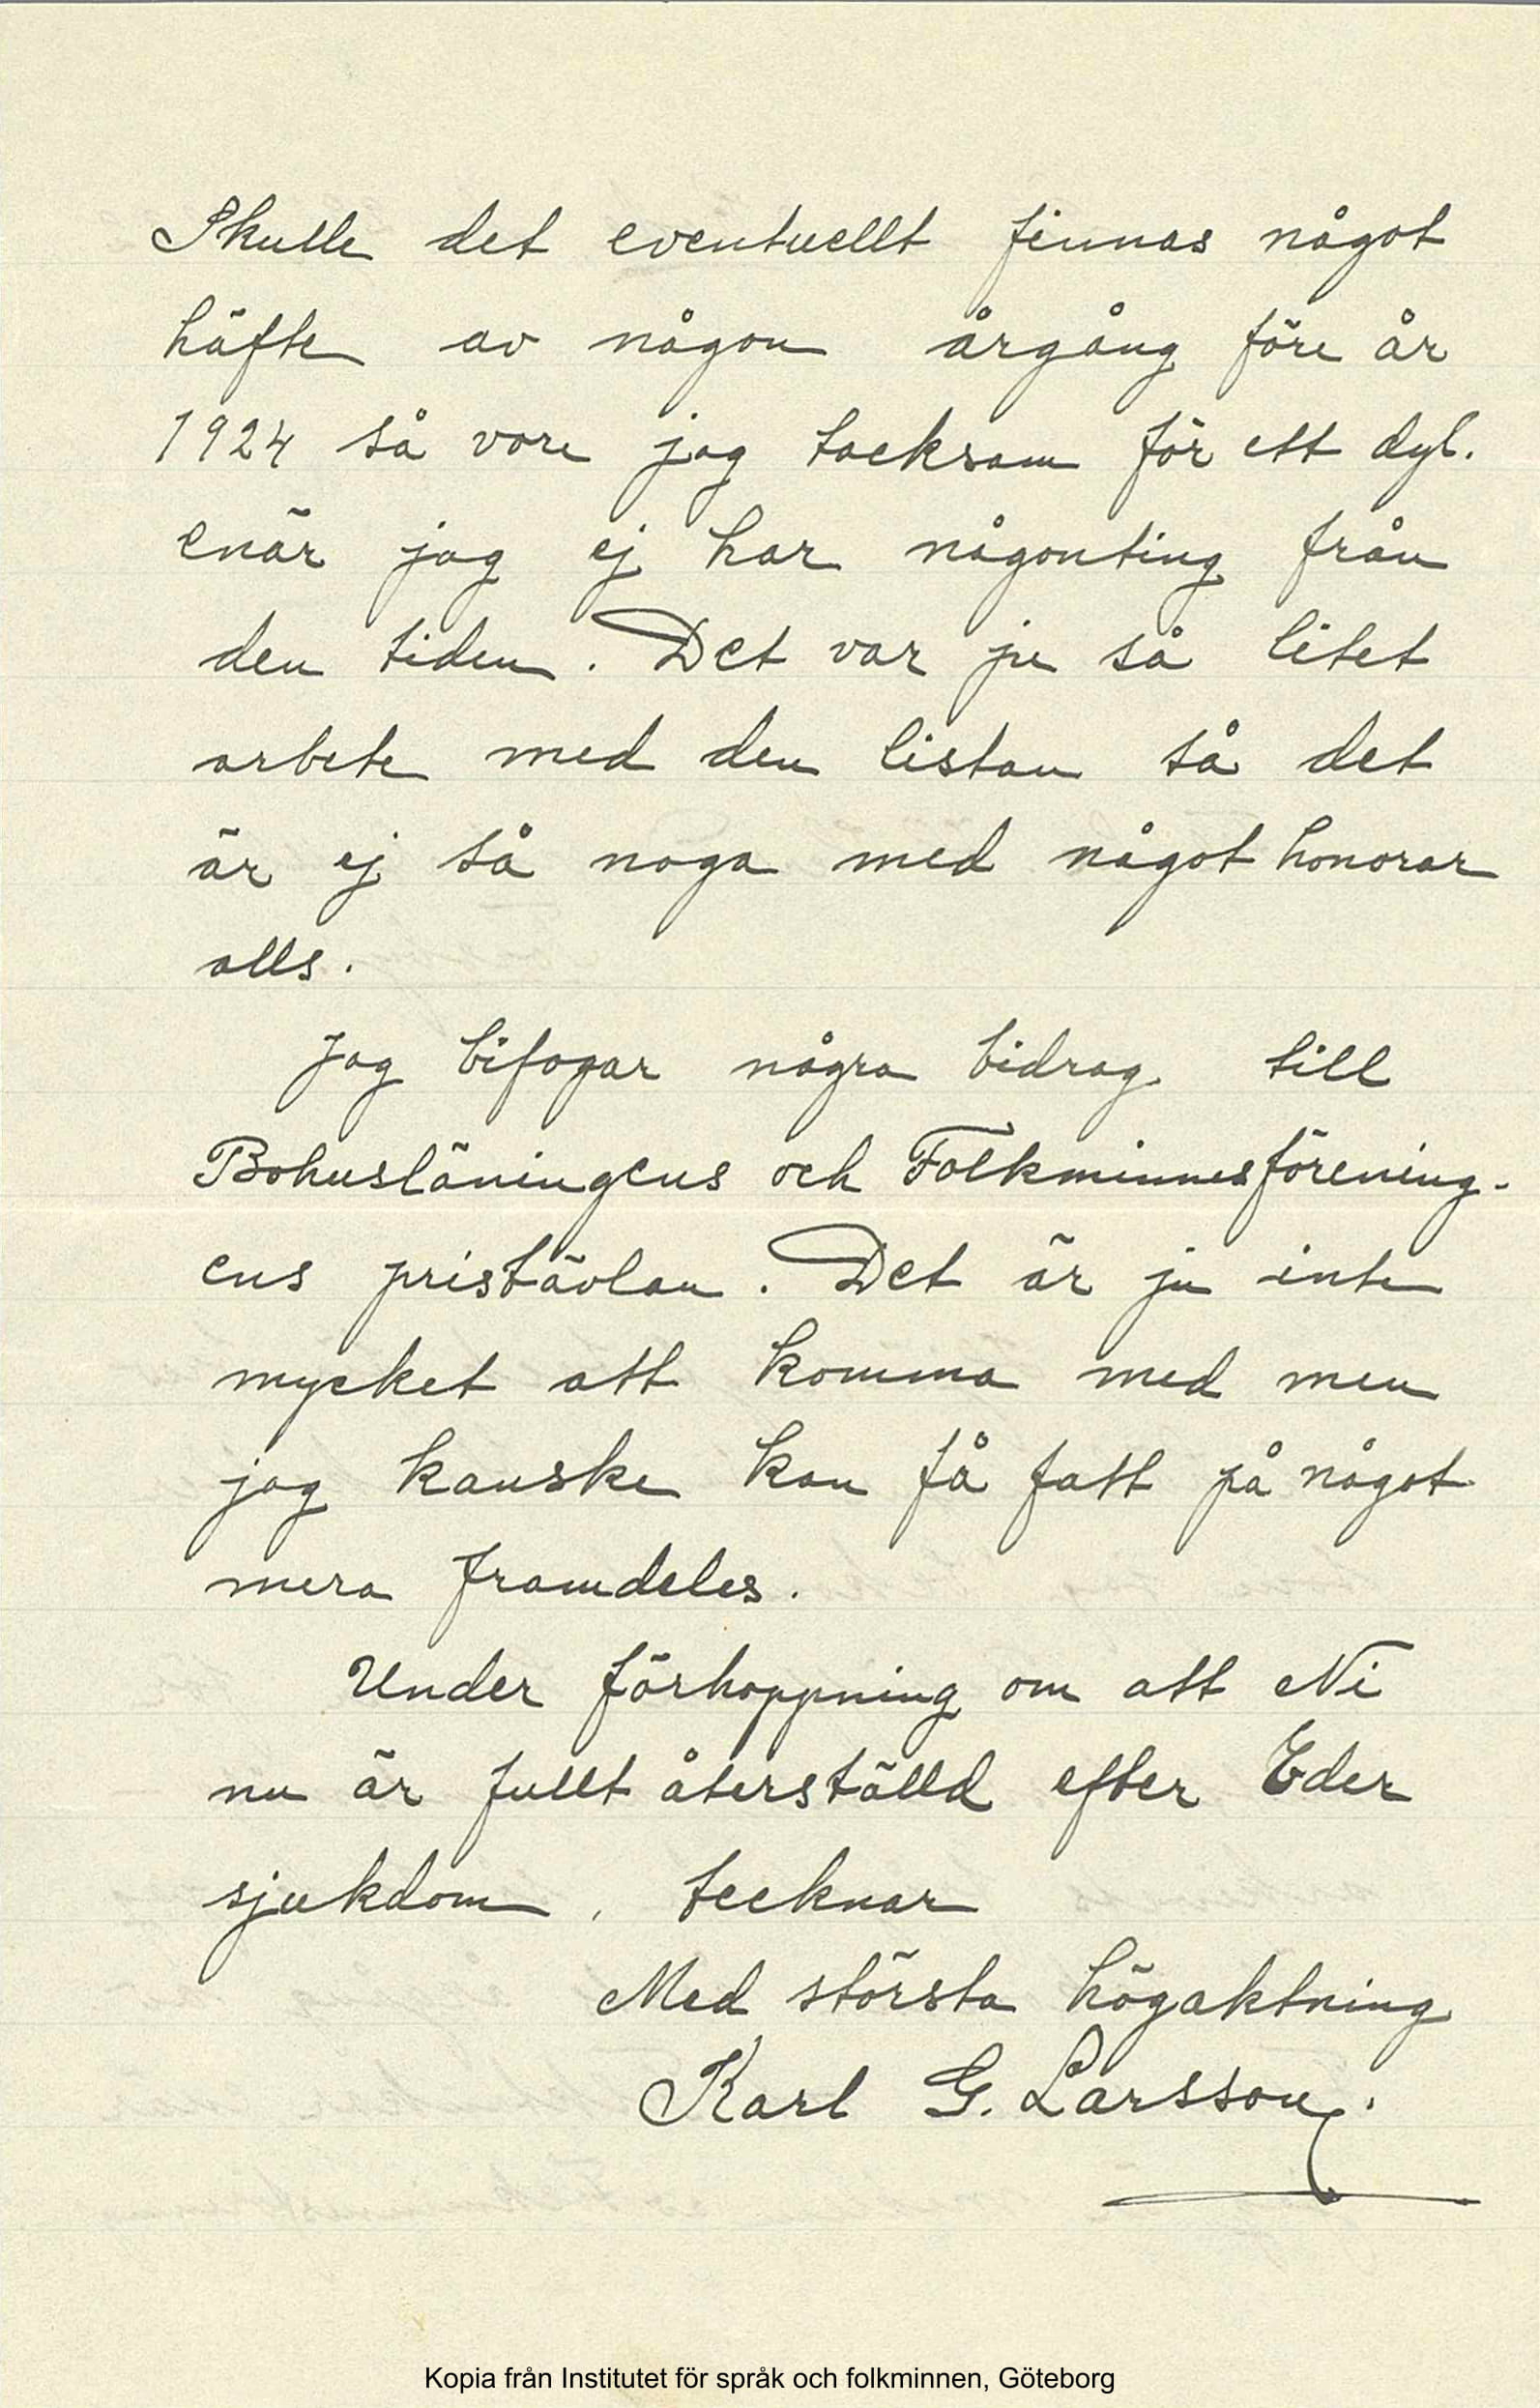 Skulle det eventuellt finnas något
häfte av någon årgång före år
1924 så vore jag tacksam för ett dyl.
enär jag ej har någonting från
den tiden. Det var ju så litet
arbete med den listan så det
är ej så noga med något honorar
alls.
Jag bifogar några bidrag till
Bohusläningens och Folkminnesförening-
ens pristävlan. Det är ju inte
mycket att komma med men
jag kanske kan få fatt på något
mera framdeles.
Under förhoppning om att Ni
nu är fullt återställd efter Eder
sjukdom, tecknar
Med största högaktning
Karl G. Larsson.
Kopia från Institutet för språk och folkminnen, Göteborg